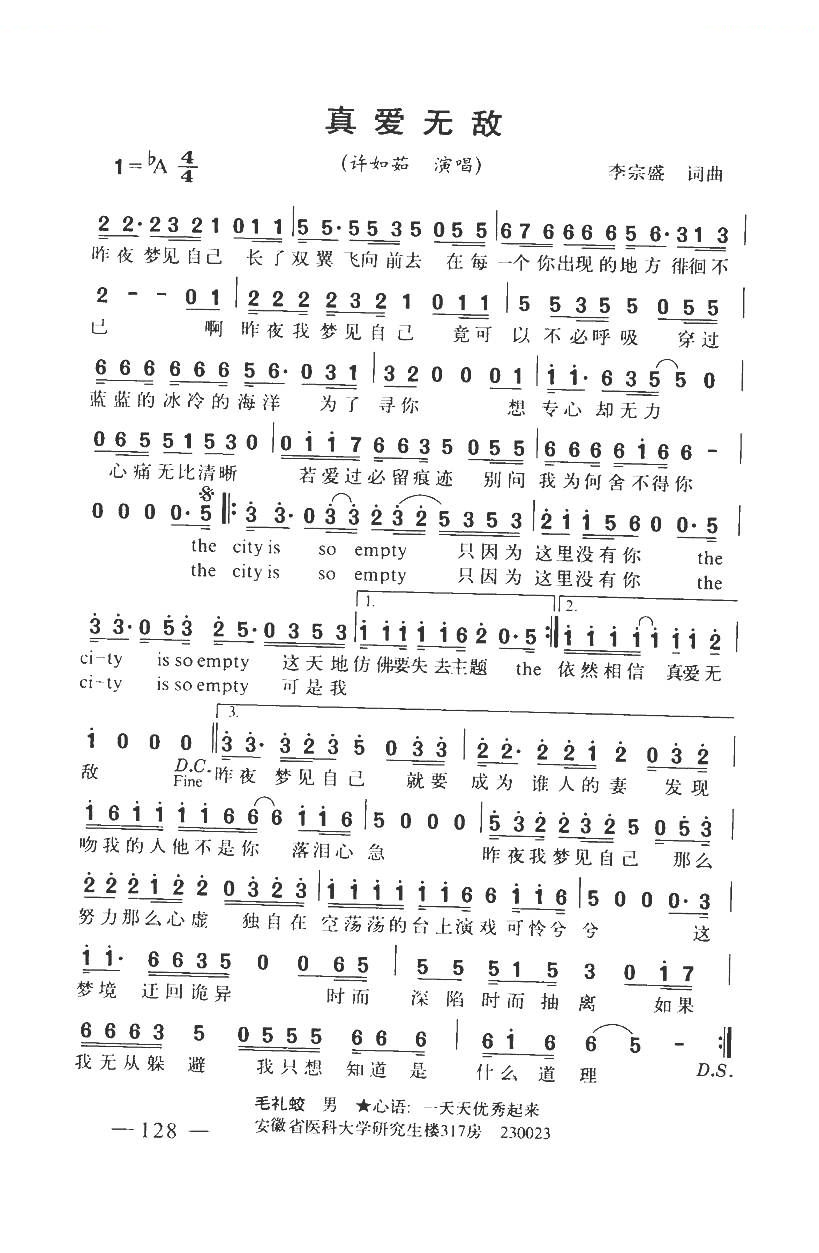 真爱无敌
1=♭A 4/4 (许如茹 演唱) 李宗盛 词曲
2 2· 2 3 2 1 0 1 1 | 5 5· 5 5 3 5 0 5 5 | 6 7 6 6 6 6 5 6· 3 1 3 |
昨夜 梦见自己 长了双翼 飞向前去 在每一个你出现的地方 徘徊不
2 - - 0 1 | 2 2 2 2 3 2 1 0 1 1 | 5 5 3 5 5 0 5 5 |
已 啊 昨夜我梦见自己 竟可以不必呼吸 穿过
6 6 6 6 6 6 5 6· 0 3 1 | 3 2 0 0 0 1 | i i· 6 3 5 5 5 0 |
蓝蓝的冰冷的海洋 为了寻你 想专心却无力
0 6 5 5 1 5 3 0 | 0 i i 7 6 6 3 5 0 5 5 | 6 6 6 6 i 6 6 - |
心痛无比清晰 若爱过必留痕迹 别问我为何舍不得你
0 0 0 0· 5 ‖: 3 3· 0 3 3 2 3 2 5 3 5 3 | 2 i i 5 6 0 0 0· 5 |
the city is so empty 只因为 这里没有你 the
the city is so empty 只因为 这里没有你 the
1. 2.
3 3· 0 5 3 2 5· 0 3 5 3 | i i i i i 6 2 0· 5 :‖ i i i i i i i 2 |
ci-ty is so empty 这天地仿佛要失去主题 the 依然相信 真爱无
ci-ty is so empty 可是我
3.
i 0 0 0 ‖ 3 3· 3 2 3 5 0 3 3 | 2 2· 2 2 i 2 0 3 2 |
敌 D.C. Fine 昨夜 梦见自己 就要成为 谁人的妻 发现
i 6 i i i i i 6 6 6 i i 6 | 5 0 0 0 | 5 3 2 2 3 2 5 0 5 3 |
吻我的人他不是你 落泪心急 昨夜我梦见自己 那么
2 2 2 i 2 2 0 3 2 3 | i i i i i i i 6 6 i i 6 | 5 0 0 0· 3 |
努力那么心虚 独自在空荡荡的台上演戏可怜兮兮 这
i i· 6 6 3 5 0 0 6 5 | 5 5 5 1 5 3 0 i 7 |
梦境 迂回诡异 时而深陷时而抽离 如果
6 6 6 3 5 0 5 5 5 6 6 6 | 6 i 6 6 5 - :‖
我无从躲避 我只想知道是什么道理 D.S.
毛礼蛟 男 ★心语:一天天优秀起来
— 128 — 安徽省医科大学研究生楼317房 230023